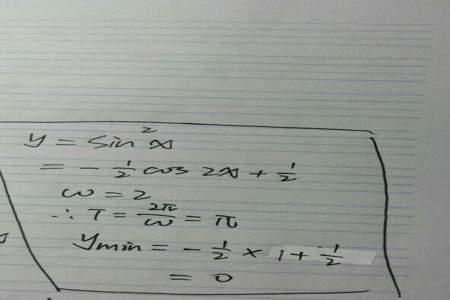 y = sin²x
= -½ cos 2x + ½
ω = 2
∴ T = 2π/ω = π
ymin = -½ × 1 + ½
= 0